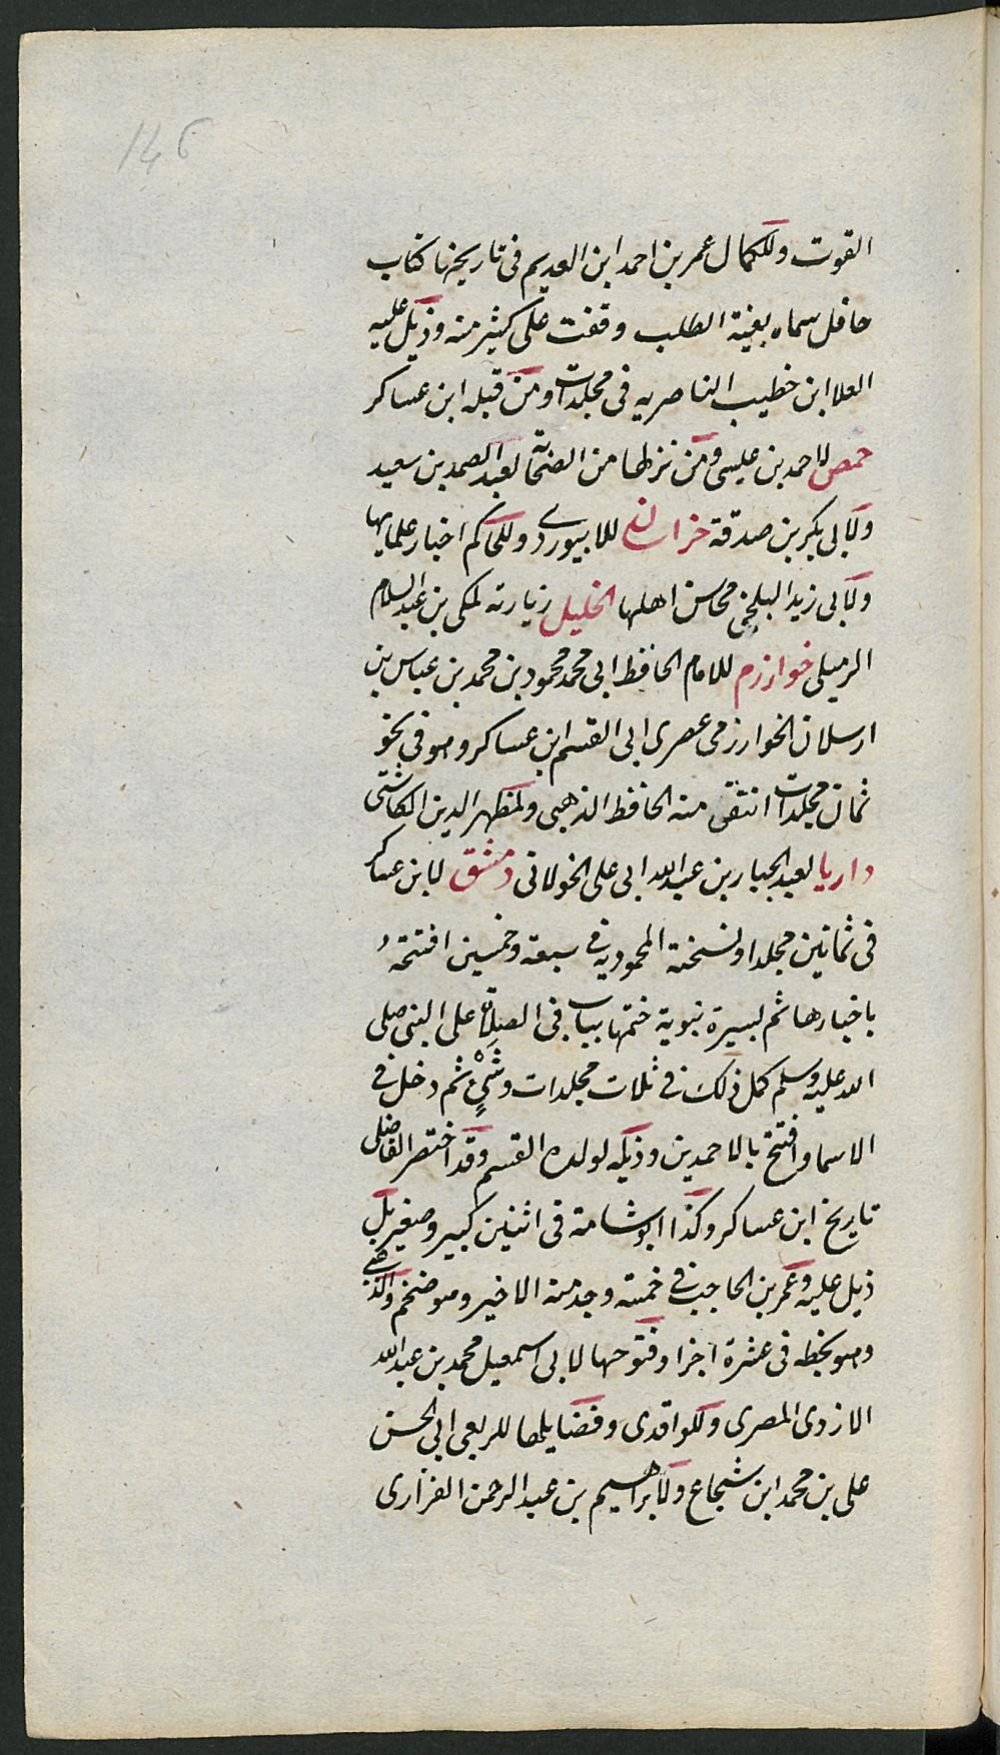 146
القوت وللكمال عمر بن احمد ابن العديم فى تاريخها كتاب
حافل سماه بغية الطلب وقفت على كثير منه وذيل عليه
العلا ابن خطيب الناصريه فى مجلدات ومن قبله ابن عساكر
حمص لاحمد بن عيسى ومن نزلها من الصحابة لعبد الصمد بن سعيد
ولابى بكر بن صدقة خراسان للابيوردى وللحاكم اخبار علمايها
ولابى زيد البلخى محاسن اهلها الخليل زيارته لمكى بن عبد السلام
الرميلى خوارزم للامام الحافظ ابى محمد محمود بن محمد بن عباس بن
ارسلان الخوارزمى عصرى ابى القسم ابن عساكر وهو فى نحو
ثمان مجلدات انتقى منه الحافظ الذهبى ولمظهر الدين الكاشى
داريا لعبد الجبار بن عبد الله ابى على الخولانى دمشق لابن عساكر
فى ثمانين مجلدا ونسخة المحموديه فى سبعة وخمسين افتتحه
باخبارها ثم لسيرة نبوية ختمها بباب فى الصلاة على النبى صلى
الله عليه وسلم كمل ذلك فى ثلاث مجلدات وشىء ثم دخل فى
الاسما وافتتح بالاحمدين وذيله لولده القسم وقد اختصر الفاضلى
تاريخ ابن عساكر وكذا ابو شامة فى اثنين كبير وصغير بل
ذيل عليه وعمر بن الحاجب فى خمسة وجد منه الاخير وهو ضخم والذهبى
وهو بخطه فى عشرة اجزا وفتوحها لابى اسمعيل محمد بن عبد الله
الازدى المصرى وللواقدى وفضايلها للربعى ابى الحسن
على بن محمد ابن شجاع ولابراهيم بن عبد الرحمن الفزارى